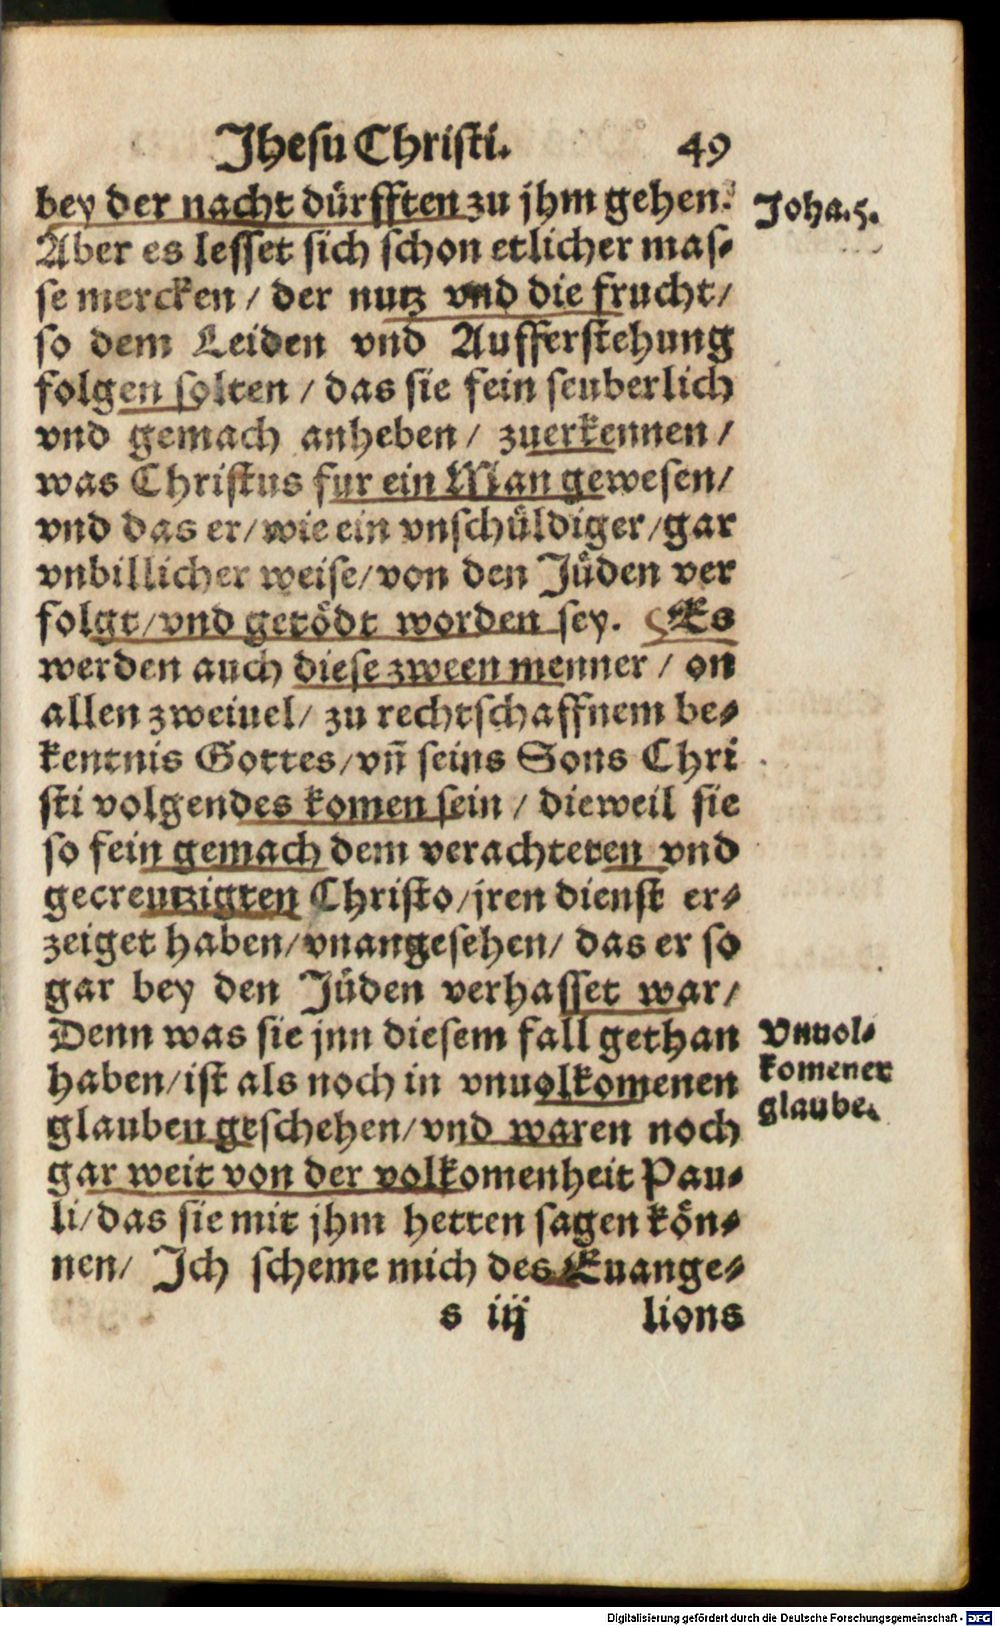 Jhesu Christi. 49
bey der nacht dürfften zu jhm gehen.
Joha.5.
Aber es lesset sich schon etlicher mas-
se mercken / der nutz vnd die frucht /
so dem Leiden vnd Aufferstehung
folgen solten / das sie fein seuberlich
vnd gemach anheben / zuerkennen /
was Christus fur ein Man gewesen /
vnd das er / wie ein vnschüldiger / gar
vnbillicher weise / von den Jüden ver
folgt / vnd getödt worden sey. Es
werden auch diese zween menner / on
allen zweiuel / zu rechtschaffnem be-
kentnis Gottes / vñ seins Sons Chri
sti volgendes komen sein / dieweil sie
so fein gemach dem verachteten vnd
gecreutzigten Christo / jren dienst er-
zeiget haben / vnangesehen / das er so
gar bey den Jüden verhasset war /
Denn was sie jnn diesem fall gethan
haben / ist als noch in vnuolkomenen
glauben geschehen / vnd waren noch
gar weit von der volkomenheit Pau-
li / das sie mit jhm hetten sagen kön-
nen / Ich scheme mich des Euange-
Vnuol-
komener
glaube.
s iij lions
Digitalisierung gefördert durch die Deutsche Forschungsgemeinschaft - DFG